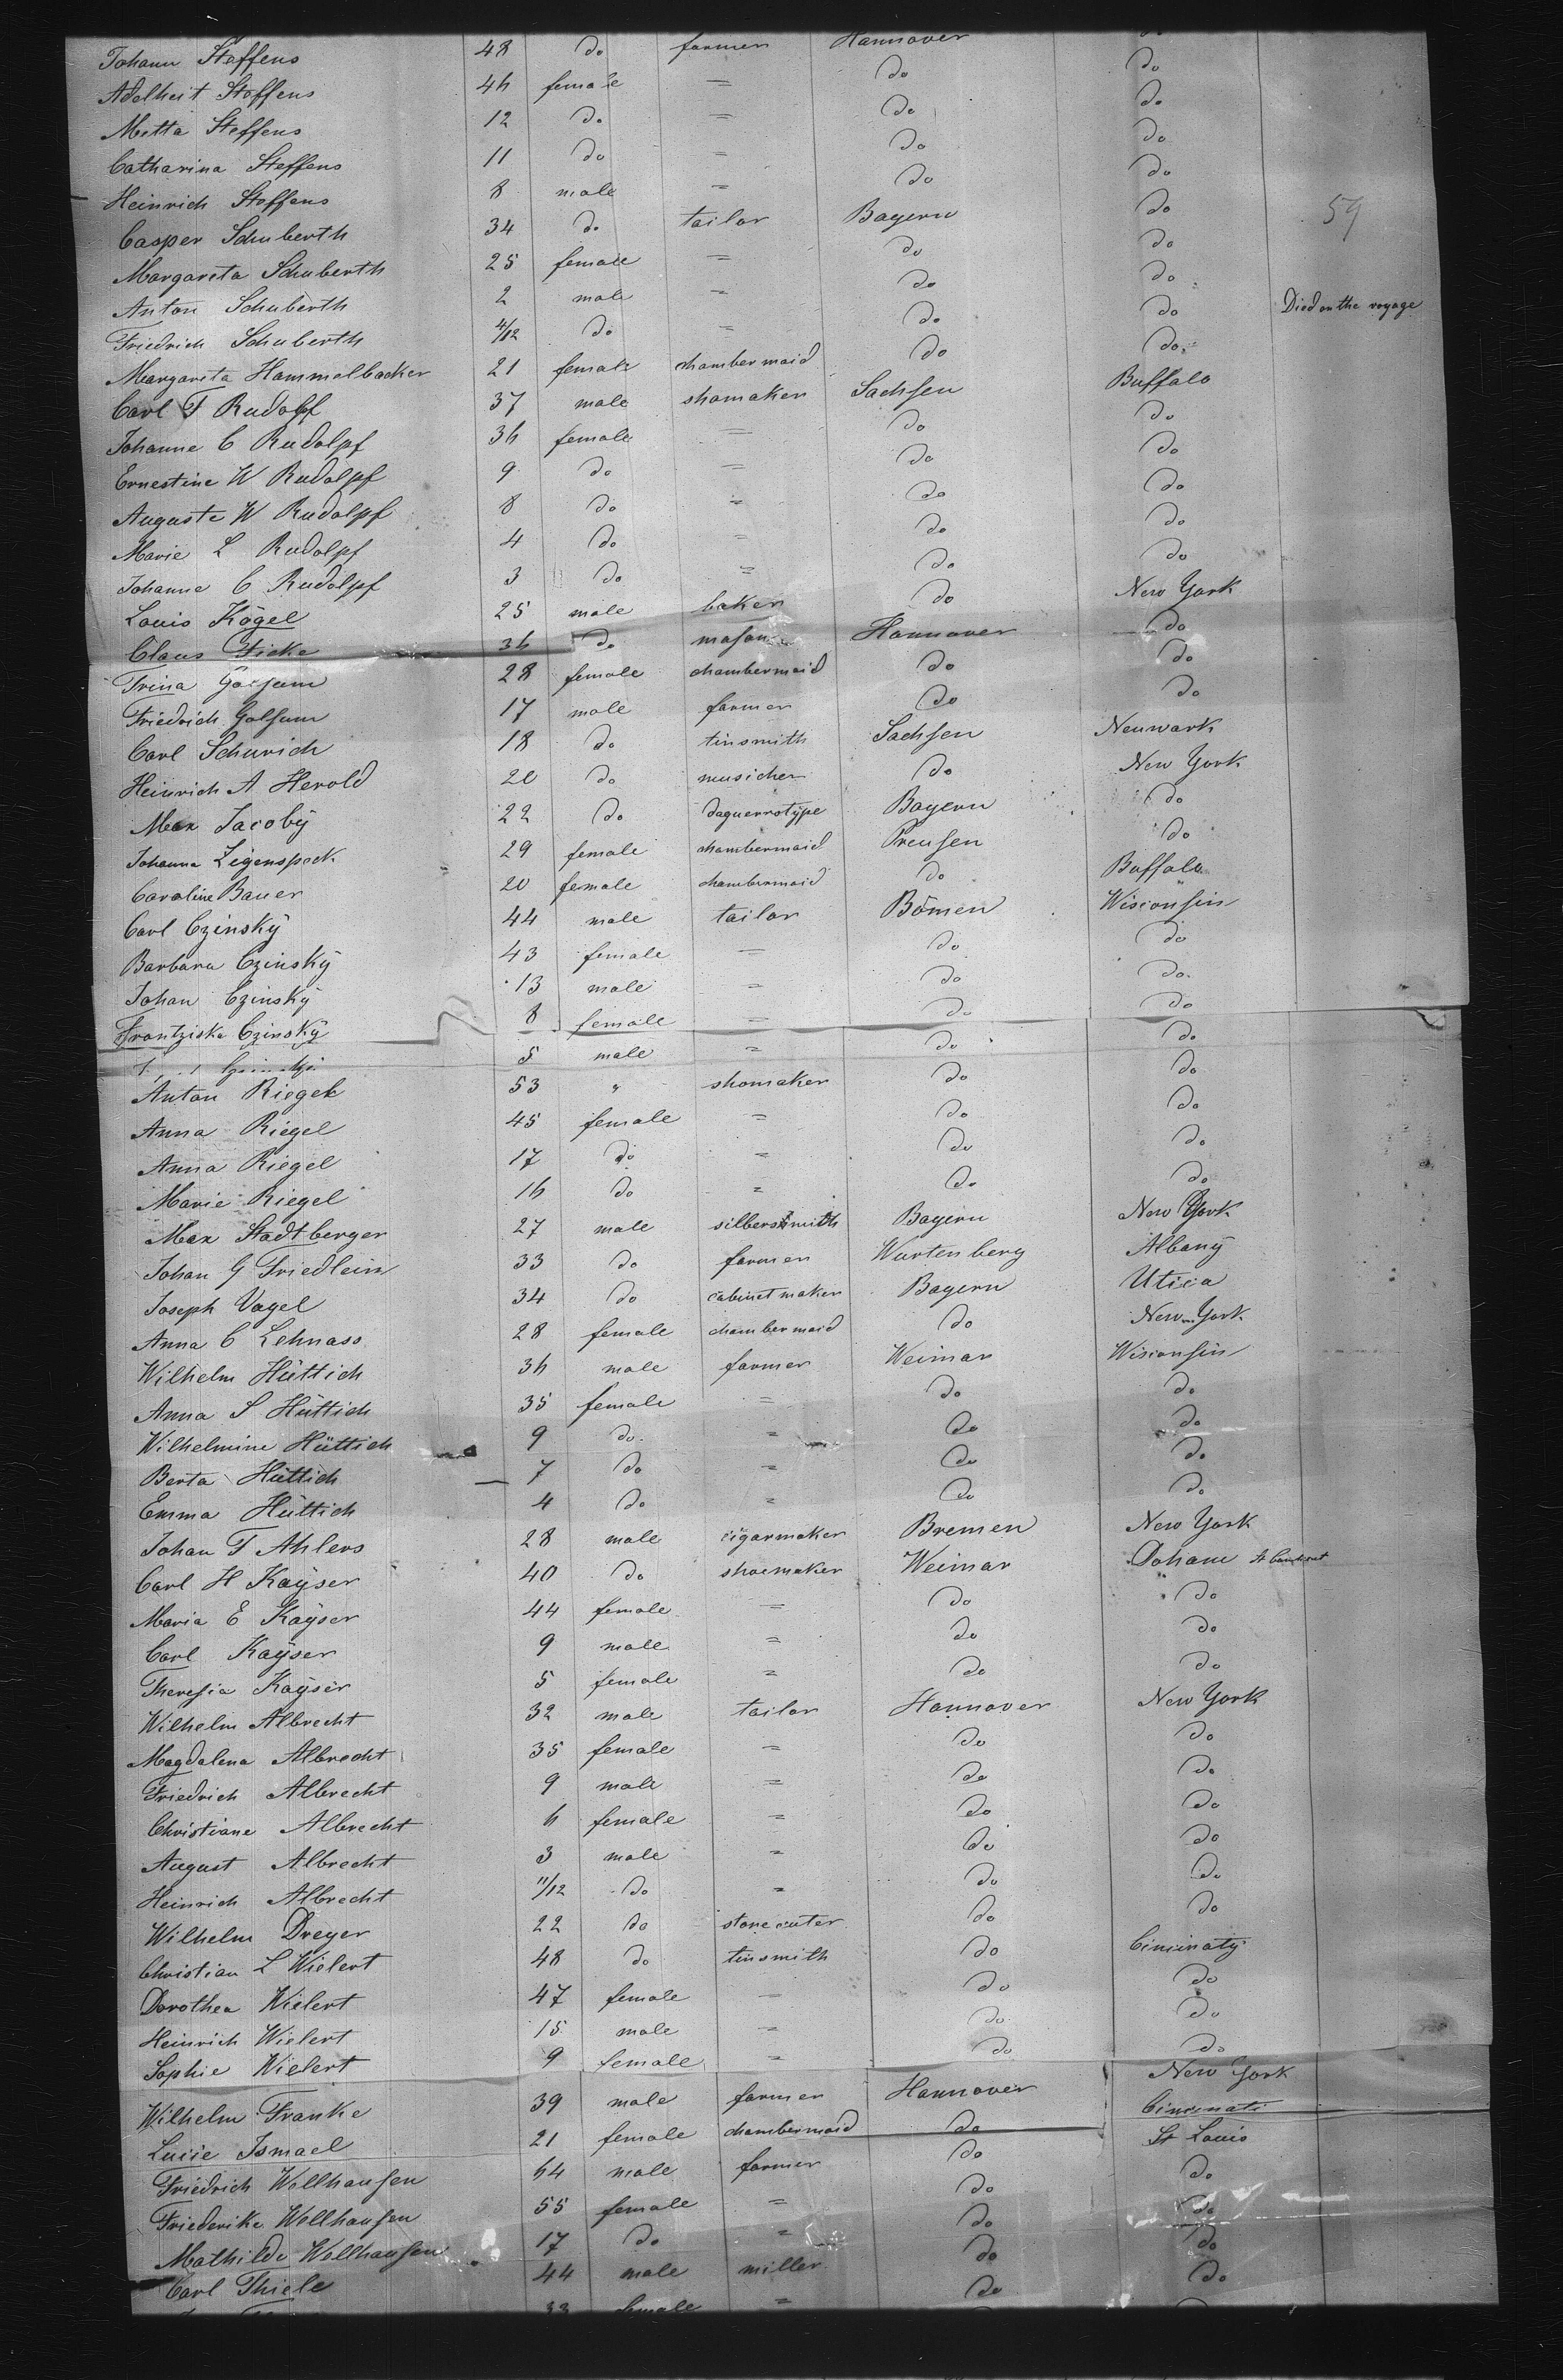 Johann Steffens 48 do farmer Hannover do
Adelheit Steffens 46 female = do do
Metta Steffens 12 do = do do
Catharina Steffens 11 do = do do
Heinrich Steffens 8 male = do do
Casper Schuberth 34 do tailor Bayern do
59
Margareta Schuberth 25 female = do do
Anton Schuberth 2 male = do do
Friedrich Schuberth 4/12 do = do do Died on the voyage
Margareta Hammelbacker 21 female chambermaid do do
Carl F Rudolpf 37 male shomaker Sachsen Buffalo
Johanne C Rudolpf 36 female = do do
Ernestine W Rudolpf 9 do = do do
Auguste W Rudolpf 8 do = do do
Marie L Rudolpf 4 do = do do
Johanne C Rudolpf 3 do = do do
Louis Kögel 25 male baker do New York
Claus Ficke 36 do mason Hannover do
Trina 28 female chambermaid do do
Friedrich Golsum 17 male farmer do do
Carl Schurich 18 do tinsmith Sachsen Neuwark
Heinrich A Herold 20 do musicker do New York
Max Jacobÿ 22 do daguerrotÿpe Bayern do
Johanna Zigenspeck 29 female chambermaid Preusen do
Caroline Bauer 20 female chambermaid do Buffalo
Carl Czinskÿ 44 male tailor Bömen Wisconsin
Barbara Czinskÿ 43 female = do do
Johan Czinskÿ 13 male = do do
Frantziska Czinskÿ 8 female = do do
5 male = do do
Anton Riegel 53 " shomaker do do
Anna Riegel 45 female = do do
Anna Riegel 17 do = do do
Marie Riegel 16 do = do do
Max Stadtberger 27 male silbersmith Bayern New York
Johan G Friedlein 33 do farmer Wurtenberg Albanÿ
Joseph Vogel 34 do cabinetmaker Bayern Utica
Anna C Lehnass 28 female chambermaid do New York
Wilhelm Hüttich 36 male farmer Weimar Wisconsin
Anna S Hüttich 35 female = do do
Wilhelmine Hüttich 9 do = do do
Berta Hüttich 7 do = do do
Emma Hüttich 4 do = do do
Johan F Ahlers 28 male cigarmaker Bremen New York
Carl H Kaÿser 40 do shoemaker Weimar Doham
Maria E Kaÿser 44 female = do do
Carl Kaÿser 9 male = do do
Theresia Kaÿser 5 female = do do
Wilhelm Albrecht 32 male tailor Hannover New York
Magdalena Albrecht 35 female = do do
Friedrich Albrecht 9 male = do do
Christiane Albrecht 6 female = do do
August Albrecht 3 male = do do
Heinrich Albrecht 11/12 do = do do
Wilhelm Dreyer 22 do stonecuter do do
Christian L Wielert 48 do tinsmith do Cincinaty
Dorothea Wielert 47 female = do do
Heinrich Wielert 15 male = do do
Sophie Wielert 9 female = do do
Wilhelm Franke 39 male farmer Hannover New York
Lucie Ismael 21 female chambermaid do Cincinati
Friedrich Wellhausen 64 male farmer do St Louis
Friederike Wellhausen 55 female = do do
Mathilde Wellhausen 17 do = do do
Carl Thiele 44 male miller do do
33 female = do do